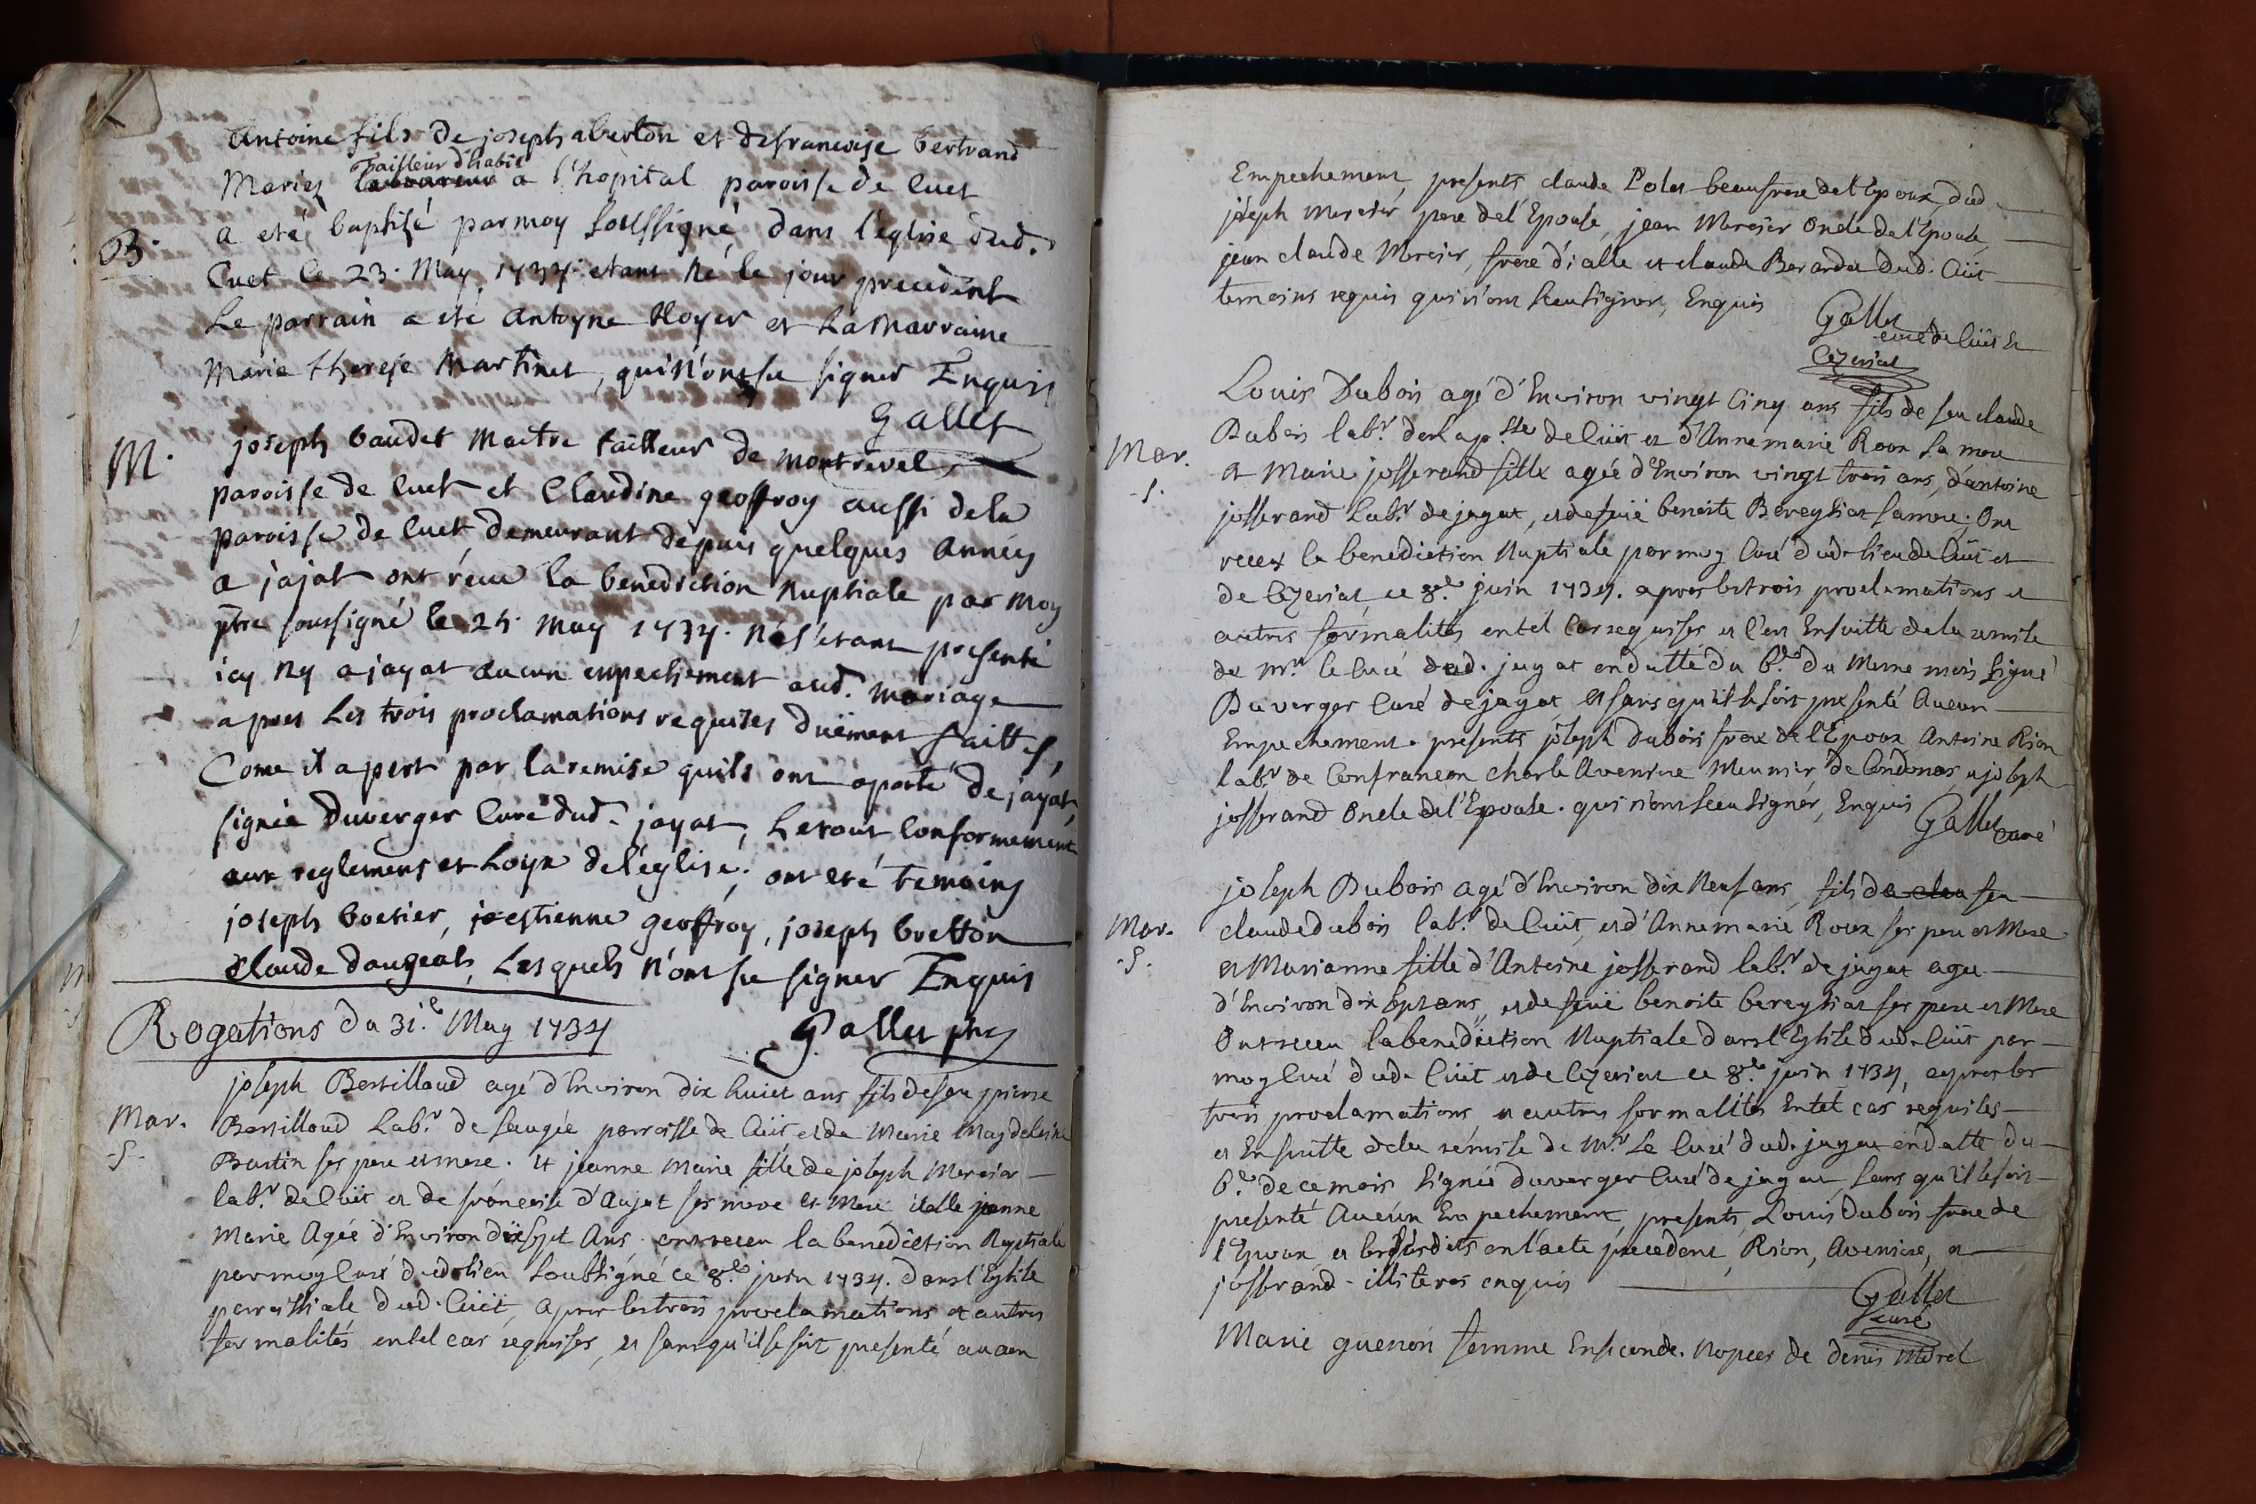 Antoine fils de joseph aberton et de francoise bertrand
Mariez Tailleur d'habit laboureur a l'hopital paroisse de Cuet
B. a eté baptisé par moy soussigné dans l'église dud.
Cuet le 23. May 1734. etant né le jour precedent
Le parrain a ete Antoyne Royer et La Marraine
Marie therese Martinet, qui n'ont su signer Enquis
Gallet
M. joseph baudet Maitre tailleur de Montrevel
paroisse de Cuet et Claudine geoffroy aussi de la
paroisse de Cuet demeurant depuis quelques Années
a jajat ont réçeu la benediction Nuptiale par Moy
ptre soussigné le 25. May 1734. Ne s'etant presenté
icy Ny a jayat aucun enpechement aud. Mariage
apres Les trois proclamations requises duëment faittes,
Come il apert par la remise quils ont aporté de jayat,
signée Duverger Curé dud. jayat, Le tout Conformement
aux reglemens et Loyx de l'église; ont eté temoins
joseph boesier, estienne geoffroy, joseph bretton
Claude daugeat, Lesquels n'ont su signer Enquis
Gallet ptre
Rogations du 31.e May 1734
Mar. joseph Bertilloud agé d'Environ dix huict ans fils de feu pierre
-s- Bertilloud Lab.r de paroisse de Cuit et de Marie Magdeleine
Burtin ses pere et mere. et jeanne Marie fille de joseph Mercier
lab.r de Cuit et de françoise d'Aujat ses et Mere itelle jeanne
Marie Agée d'Environ dix sept Ans ont receu la benediction Nuptiale
par moy Curé dud. lieu Soubsigné ce 8.e juin 1734. dans l'Eglise
parroissiale dud. Cuit, apres les trois proclamations et autres
formalités en tel cas requises, et sans qu'il se soit presenté aucun
Empechement, presents claude Polet beaufrere de l'Epoux, dud.
joseph Mercier pere de l'Epouse, jean Mercier Oncle de l'Epouse,
jean claude Mercier, frere d'icelle et claude Berardet dud. Cuit
temoins requis qui n'ont sceu signer, Enquis
Gallet
curé de Cuit et
Cezeriat
Louis Dubois agé d'Environ vingt Cinq ans fils de feu claude
Mar. Dubois lab.r de la p.sse de Cuit et d'Anne marie Roux sa mere
-s. et Marie josserand fille agée d'Environ vingt trois ans, d'antoine
josserand Lab.r de jayat, et de feuë benoite Bereyziat sa mere. Ont
receu la benediction Nuptiale par moy Curé dud. lieu de Cuit et
de Cezeriat, ce 8.e juin 1734. apres les trois proclamations et
autres formalités en tel Cas requises et l'en Ensuitte de la remise
de M.r le Curé dud. jayat en datte du 6.e du Meme mois signé
Duverger Curé de jayat, et sans qu'il se soit presenté Aucun
Empechement. presents joseph dubois frere de l'Epoux Antoine Rion
lab.r de Confrancon charle Aveniere Meunier de et joseph
josserand Oncle de l'Epouse. qui n'ont sceu signer, Enquis
Gallet curé
joseph Dubois agé d'Environ dix Neuf ans, fils de feu
Mar. claude dubois lab.r de Cuit, et d'Anne marie Roux ses pere et Mere
-s. et Marianne fille d'Antoine josserand lab.r de jayat agée
d'Environ dix sept ans, et de feuë benoite bereyziat ses pere et Mere
Ont receu la benediction Nuptiale dans l'Eglise dud. Cuit par
moy Curé dud. Cuit et de Cezeriat ce 8.e juin 1734, apres les
trois proclamations et autres formalités en tel cas requises
et Ensuitte de la rémise de M.r Le Curé dud. jayat en datte du
6.e de ce mois Signée duverger Curé de jayat Sans qu'il se soit
presenté Aucun Enpechement, presents Louis Dubois frere de
l'Epoux et les susdits en l'acte precedent, Rion, Aveniere, et
josserand - illiteres enquis
Gallet
curé
Marie guenon femme En seconde Nopces de denis Morel